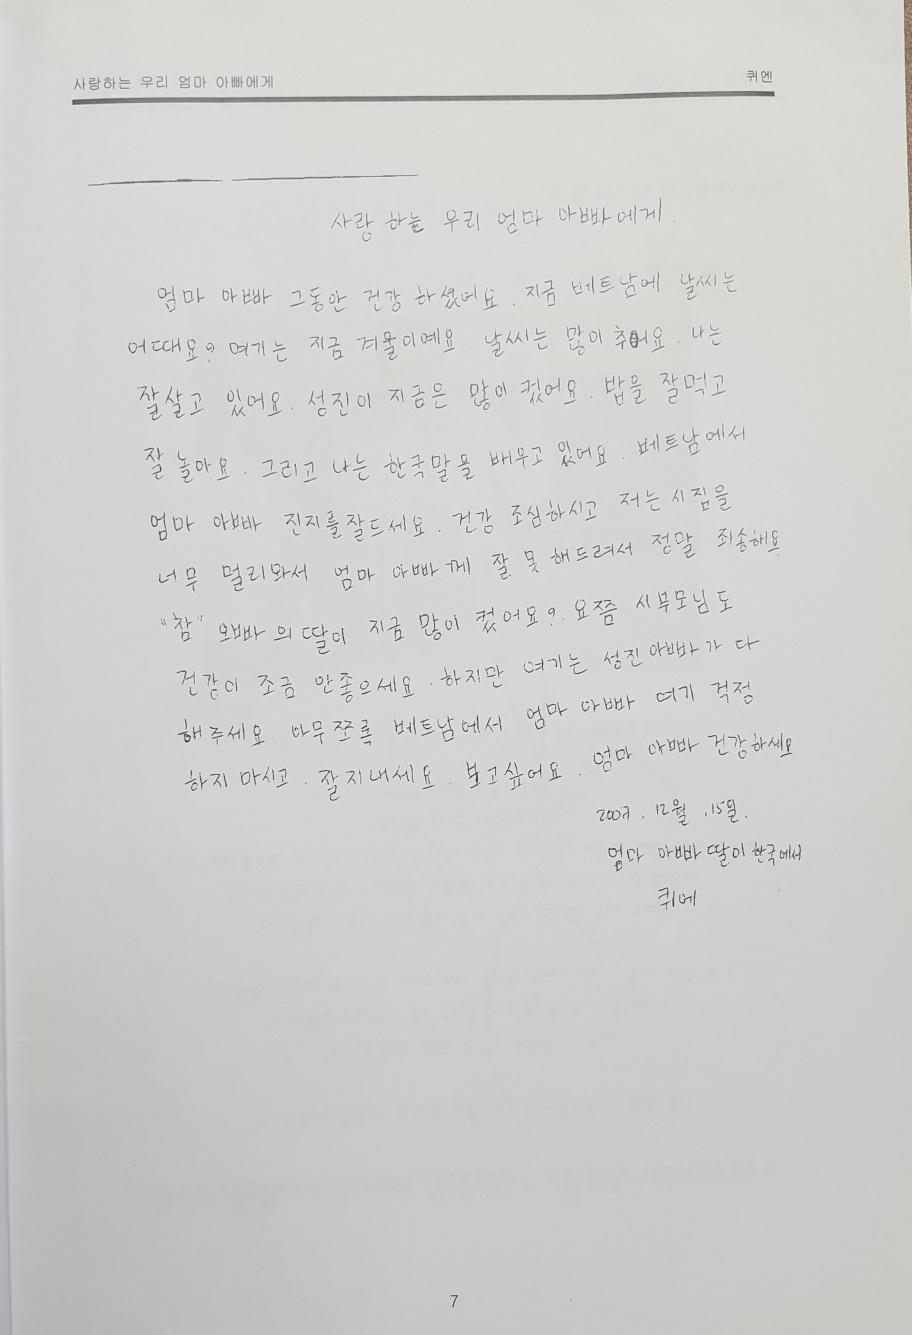 사랑하는 우리 엄마 아빠에게
퀴엔
사랑 하는 우리 엄마 아빠에게.
엄마 아빠 그동안 건강 하셨어요. 지금 베트남에 날씨는
어때요? 여기는 지금 겨울이예요. 날씨는 많이 추어요. 나는
잘살고 있어요. 성진이 지금은 많이 컸어요. 밥을 잘먹고
잘 놀아요. 그리고 나는 한국말을 배우고 있어요. 베트남에서
엄마 아빠 진지를잘드세요. 건강 조심하시고 저는 시집을
너무 멀리와서 엄마 아빠께 잘 못 해드려서 정말 죄송해요
"참" 오빠의 딸이 지금 많이 컸어요? 요쯤 시부모님도
건강이 조금 안좋으세요. 하지만 여기는 성진아빠가 다
해주세요. 아무쪼록 베트남에서 엄마 아빠 여기 걱정
하지 마시고. 잘지내세요. 보고싶어요. 엄마 아빠 건강하세요
2007. 12월 .15일.
엄마 아빠 딸이 한국에서
퀴에
7